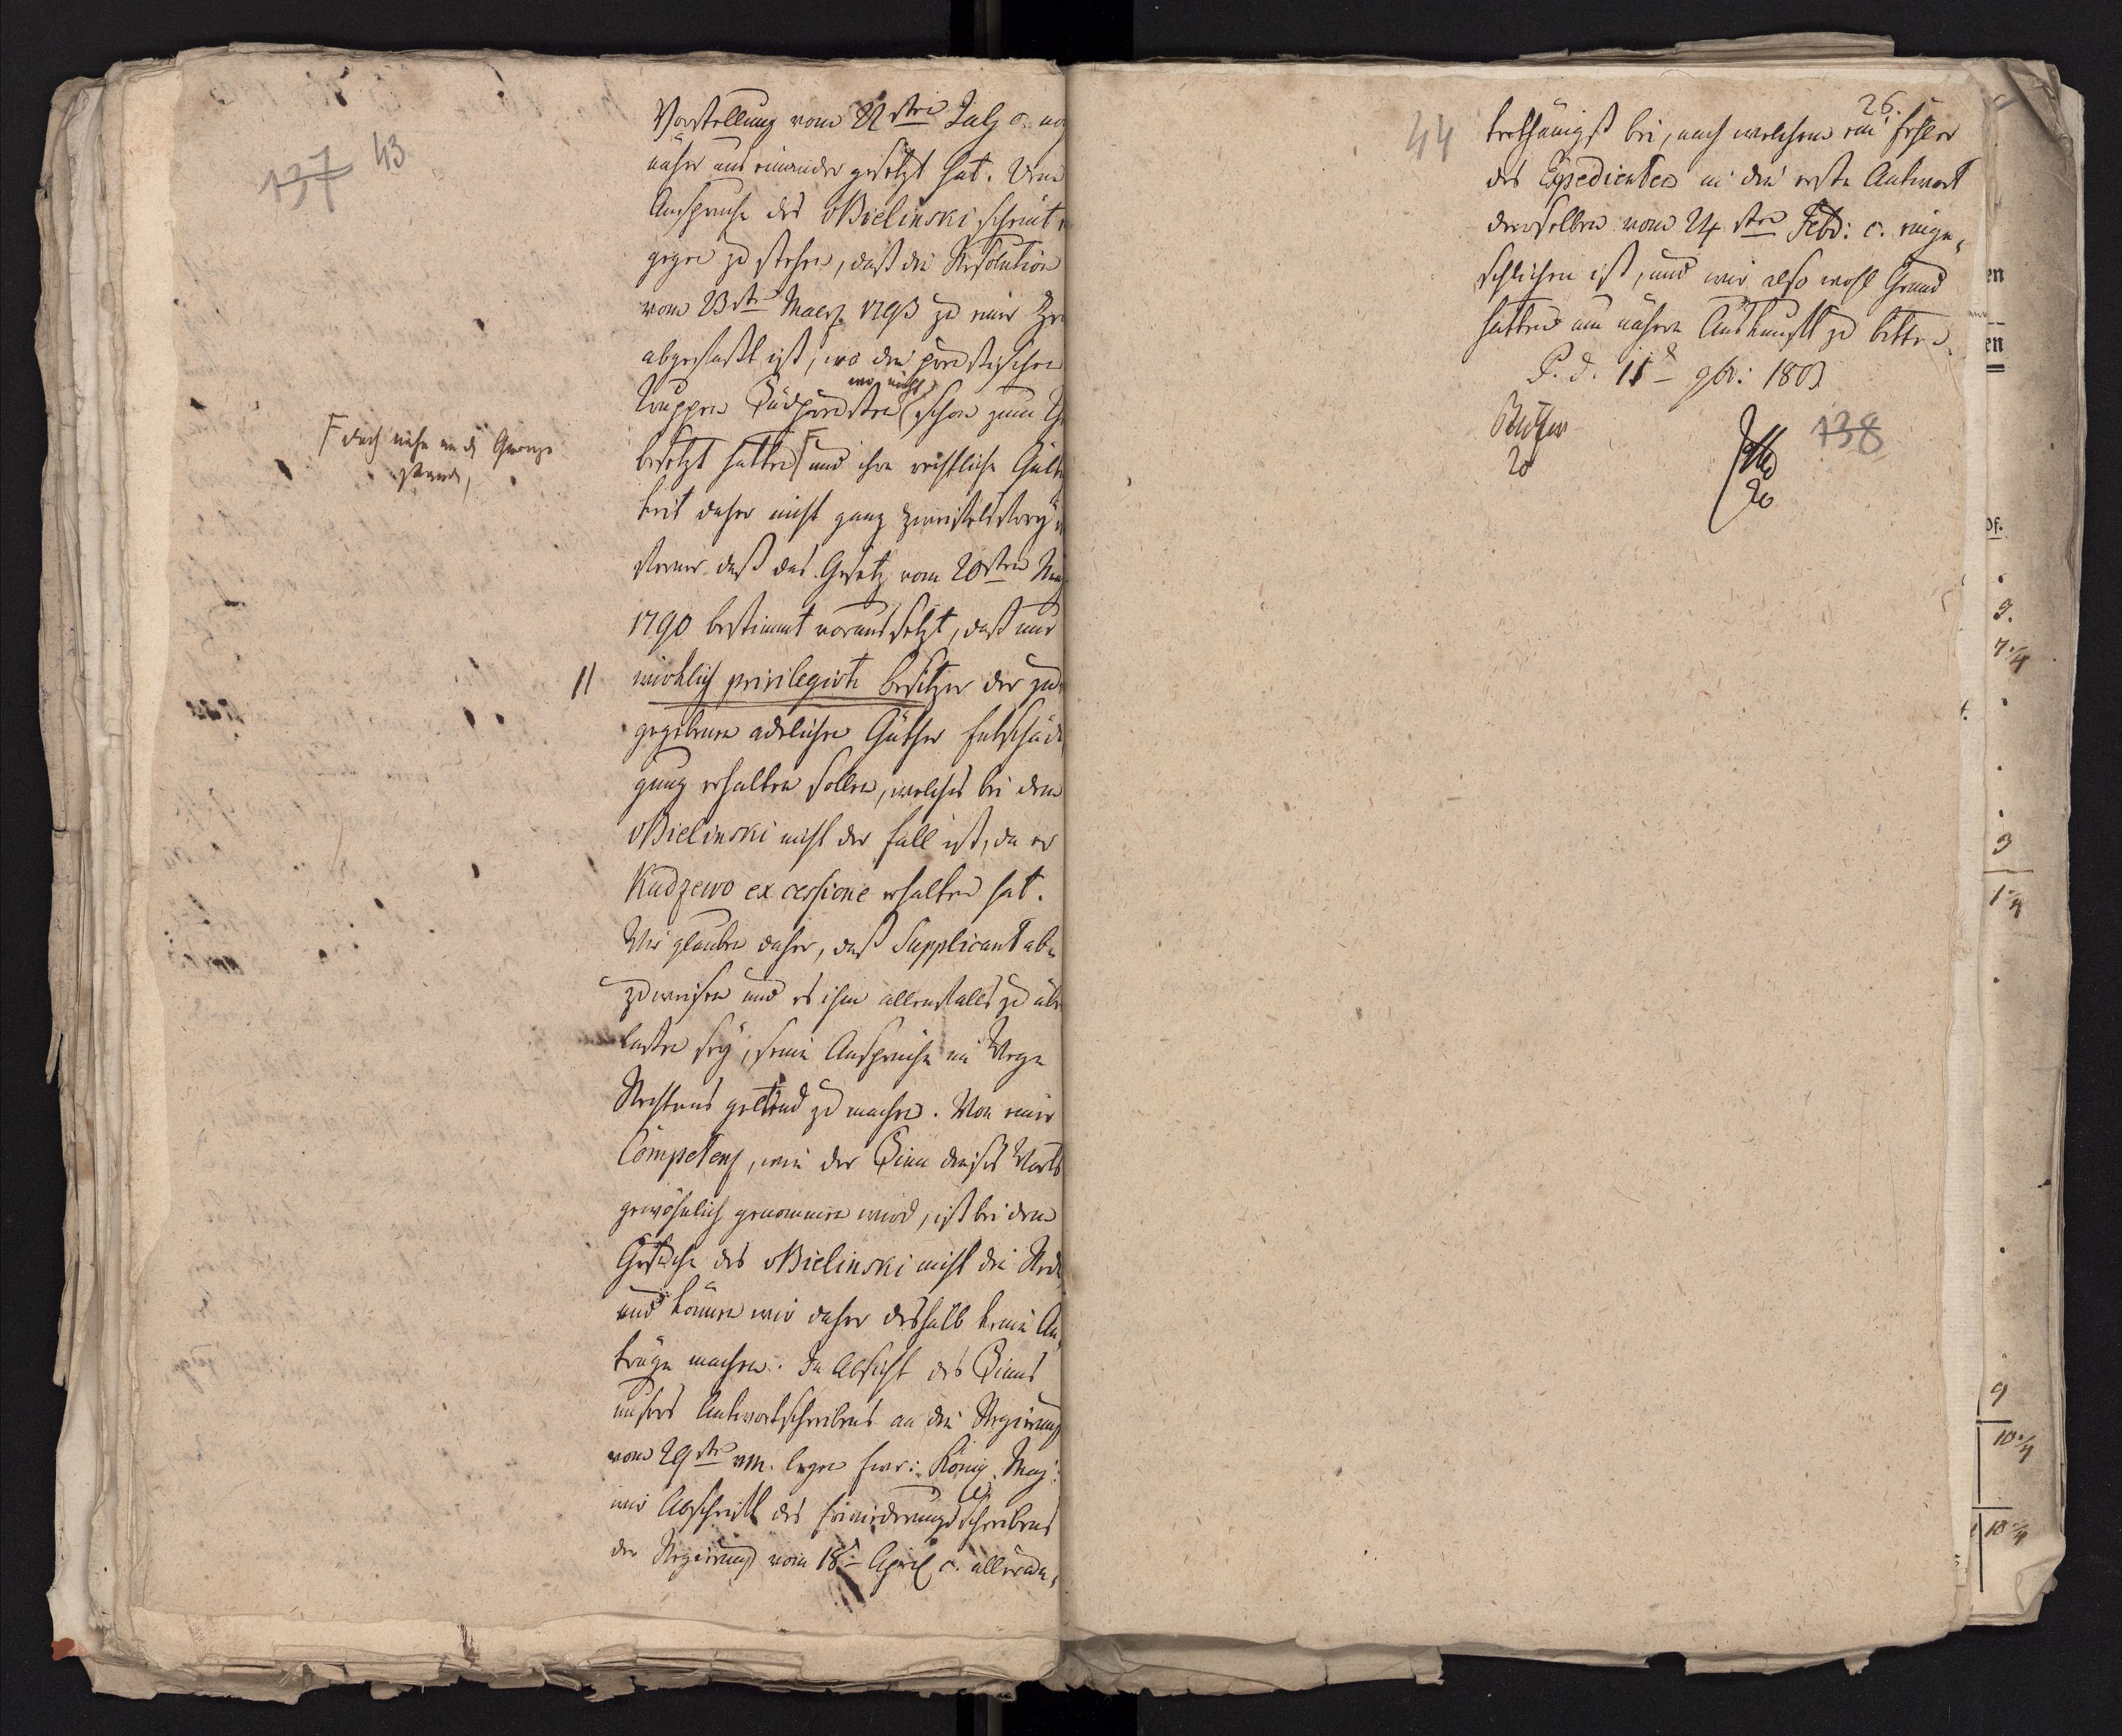 137 43
Vorstellung vom 22sten July c. no
näher aus einander gesetzt hat. Dem
Anspruche des vBielinski scheint
gegen zu stehen, daß die Resolution
vom 23ten Maerz 1793 zu einer Ze
abgefaßt ist, wo die preußischen
Truppen Südpreußen wo nicht schon zum Th
besetzt hatten und ihre rechtliche Gülti
keit daher nicht ganz zweifelsfrey
ferner daß das Gesetz vom 20sten May
1790 bestimmt voraussetzt, daß nur
wirklich privilegirte Besitzer der zu
gegebenen adelichen Güther Entschädi
gung erhalten sollen, welches bei dem
vBielinski nicht der Fall ist, da er
Kudzewo ex cessione erhalten hat.
Wir glauben daher, daß Supplicant ab
zuweisen und es ihm allenfalls zu über
lassen sey, seine Ansprüche im Wege
Rechtens geltend zu machen. Von einer
Competenz, wie der Sinn dieses Worts
gewöhnlich genommen wird, ist bei dem
Gesuche des vBielinski nicht die Rede
und können wir daher deshalb keine An
träge machen. In Absicht des Sinns
unsers Antwortschreibens an die Regierung
vom 29ten m. legen Ewr: König. Maj:
wir Abschrift des Erwiederungsschreibens
der Regierung vom 18t April c. allerun
doch nahe an der Grenze
standen,
26.
44
terthänigst bei, nach welchem ein Fehler
des Expedienten in die erste Antwort
derselben vom 24sten Febr: c. einge
schlichen ist, und wir also wohl Grund
hatten um nähere Auskunft zu bitten.
P. d. 11t 9br: 1803
20
20
138